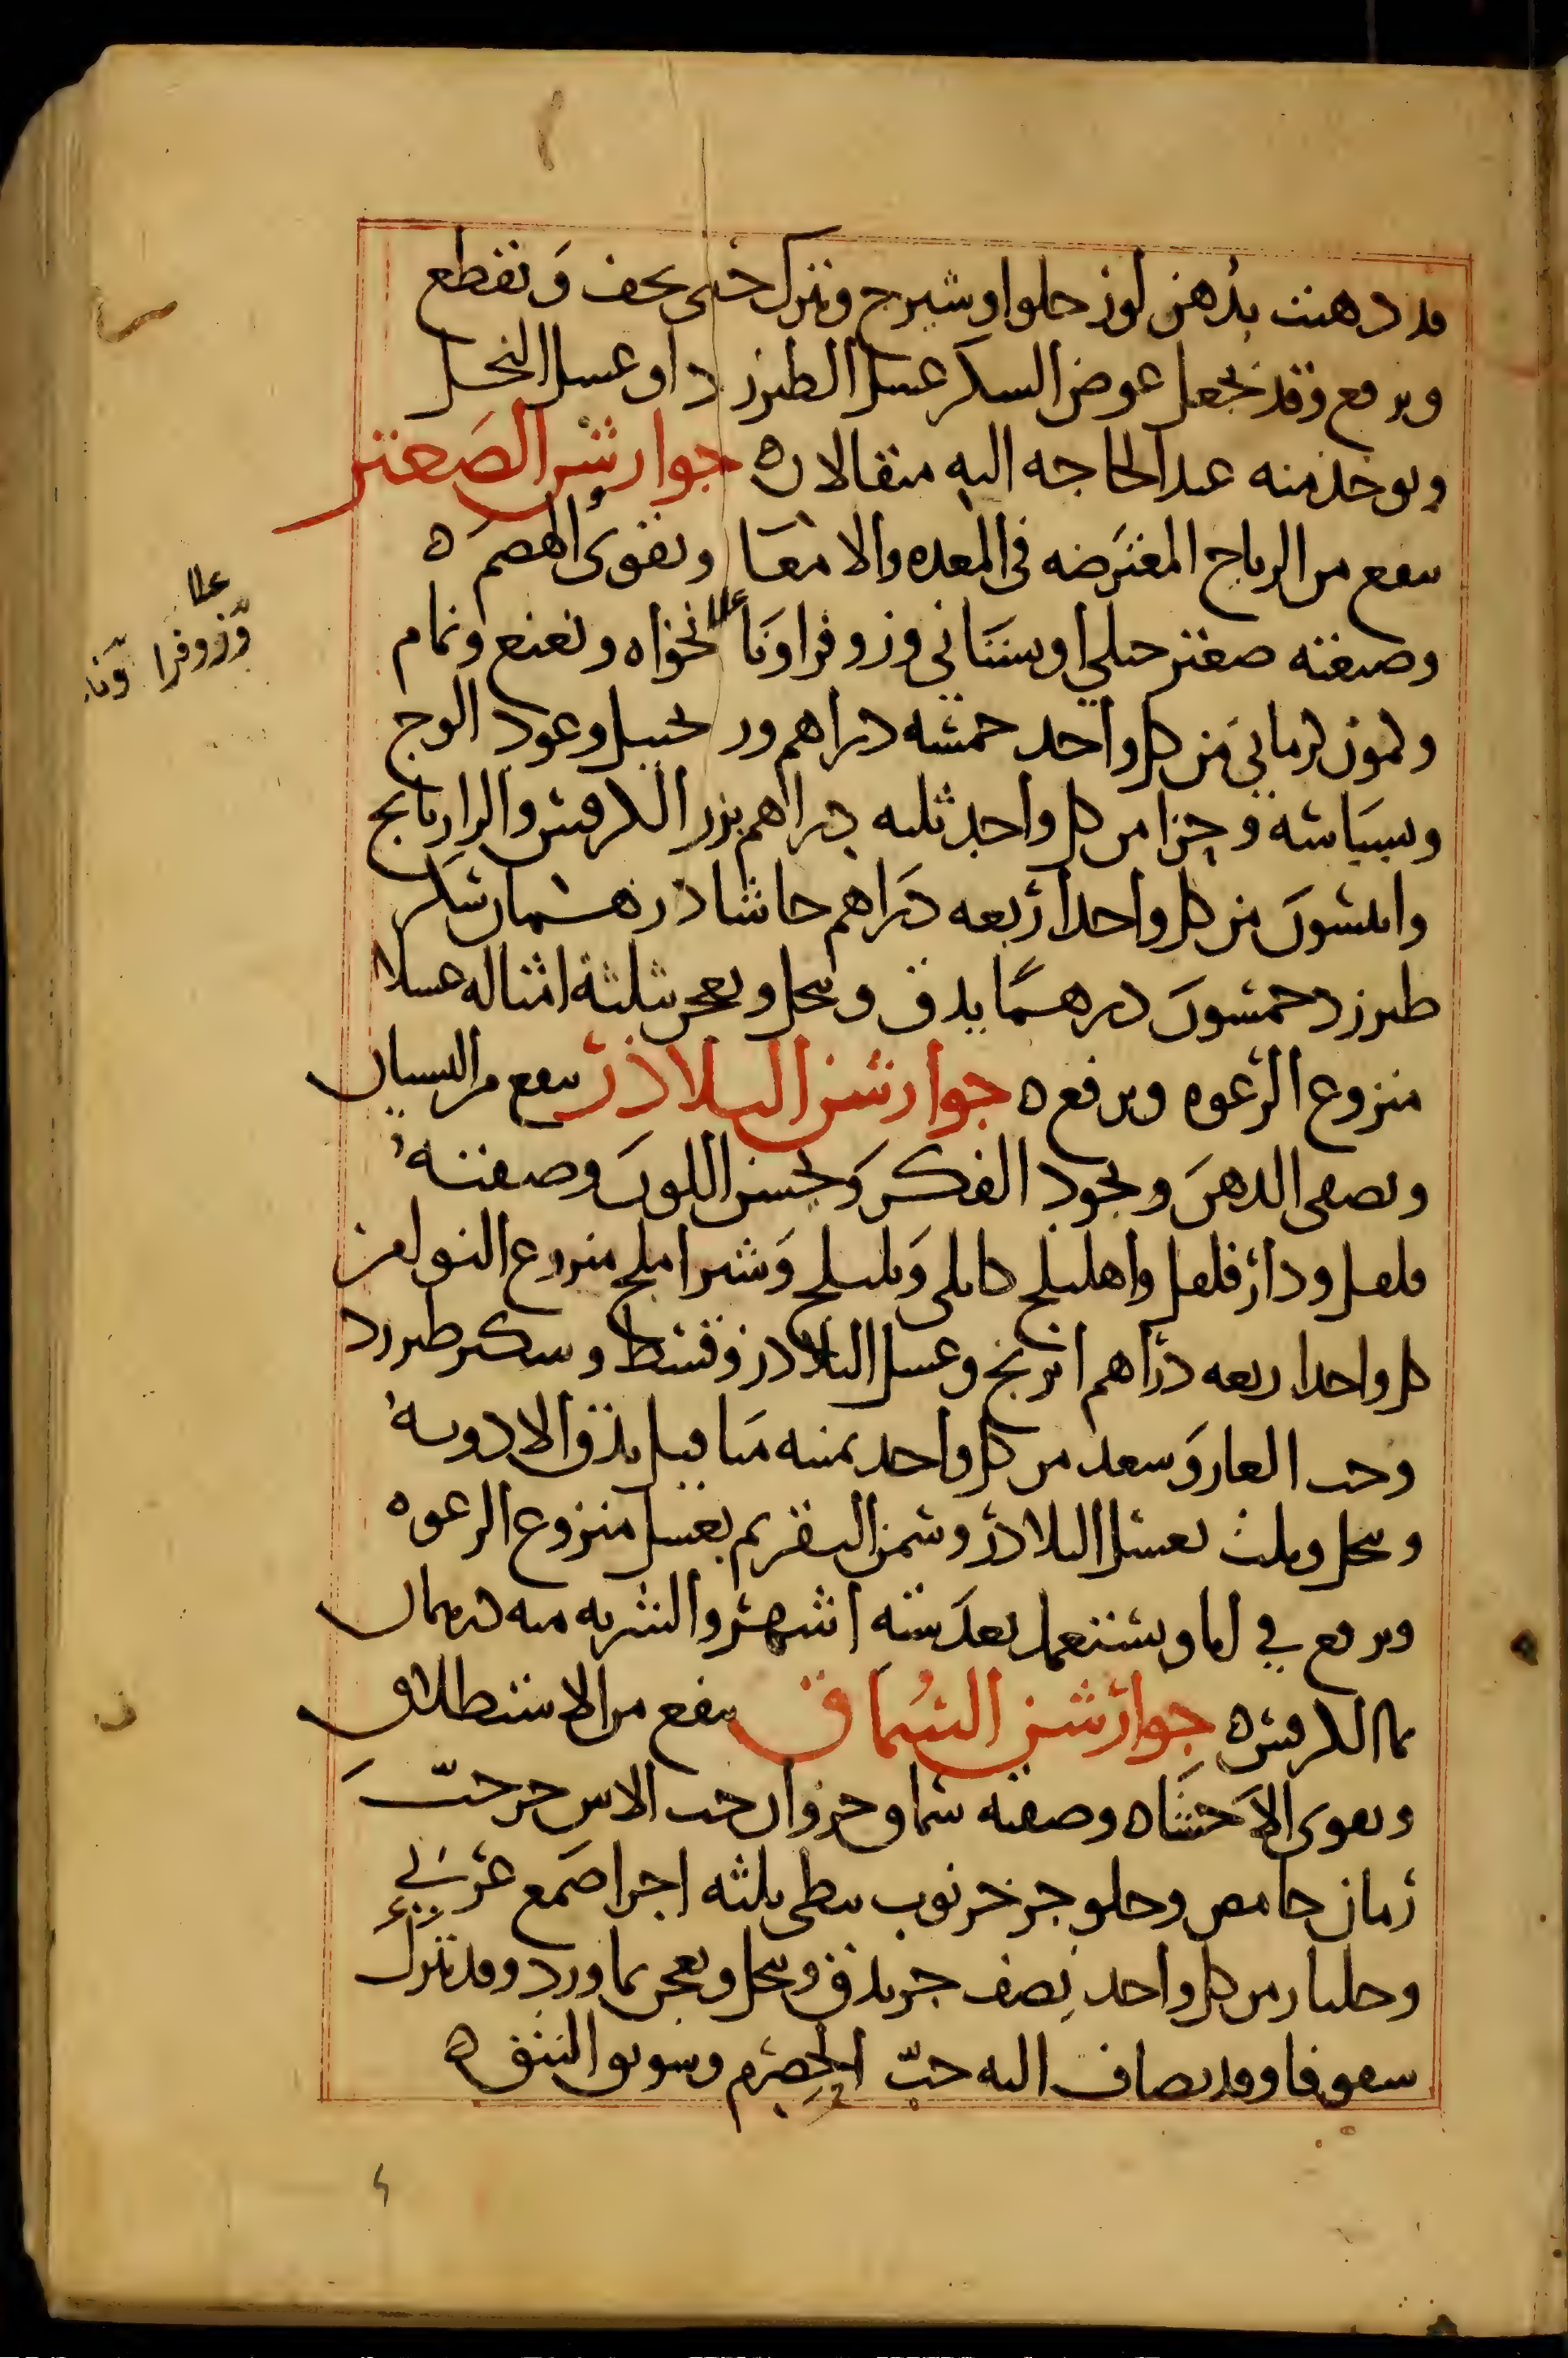 قد دهنت بدهن لوز حلو او شيرج وتترك حتى يجف وتقطع
ويرفع وقد يجعل عوض السكر عسل الطبرزد او عسل النحل
ويوخذ منه عند الحاجه اليه مثقالان ه جوارشن الصعتر
ينفع من الرياح المعترضه في المعده والامعا ويقوى الهضم ه
وصفته صعتر جبلي او بستاني وزوفرا ونانخواه ونعنع ونمام
وكمون كرماني من كل واحد خمسه دراهم وزنجبيل وعود الوج
وبسباسه وجزا من كل واحد ثلثه دراهم بزر الكرفس والرازيانج
وانيسون من كل واحد اربعه دراهم حاشا درهمان سكر
طبرزد خمسون درهما يدق وينخل ويعجن بثلثة امثاله عسلا
منزوع الرغوه ويرفع ه جوارشن البلاذر ينفع من النسيان
ويصفى الذهن ويجود الفكر ويحسن اللون وصفته
فلفل ودار فلفل واهليلج كابلى وبليلج وشير املج منزوع النوى من
كل واحد اربعه دراهم اترنج وعسل البلاذر وقسط وسكر طبرزد
وحب الغار وسعد من كل واحد ثمنيه مثاقيل يدق الادويه
وينخل ويلت بعسل البلاذر وسمن البقر ثم بعسل منزوع الرغوه
ويرفع في انا ويستعمل بعد سته اشهر والشربه منه درهمان
بما الكرفس ه جوارشن السماق ينفع من الاستطلاق
ويقوى الاحشاه وصفته سماق جزوان حب الاس جز حب
رمان حامض وحلو جز خرنوب نبطى ثلثه اجزا صمغ عربي
وجلنار من كل واحد نصف جز يدق وينخل ويعجن بماورد وقد يترك
سفوفا وقد يضاف اليه حب الحصرم وسويق النبق ه
علا
وزوفرا ونا